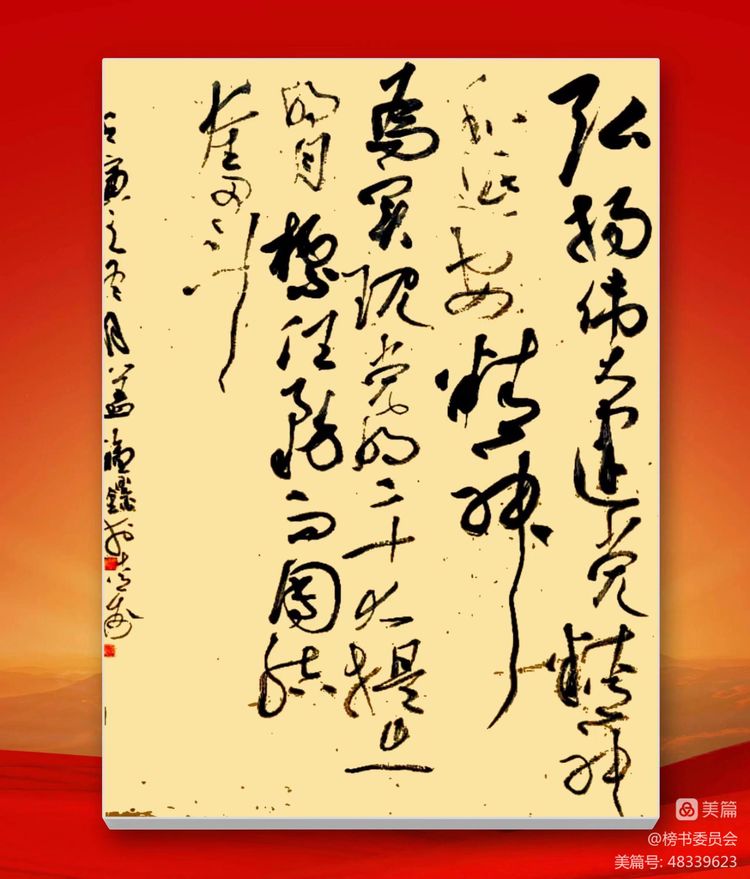 弘扬伟大建党精神
和延安精神
為实现党的二十大提出
的目標任務而團结
奮斗
壬寅之冬月
美篇
@榜书委员会
美篇号: 48339623